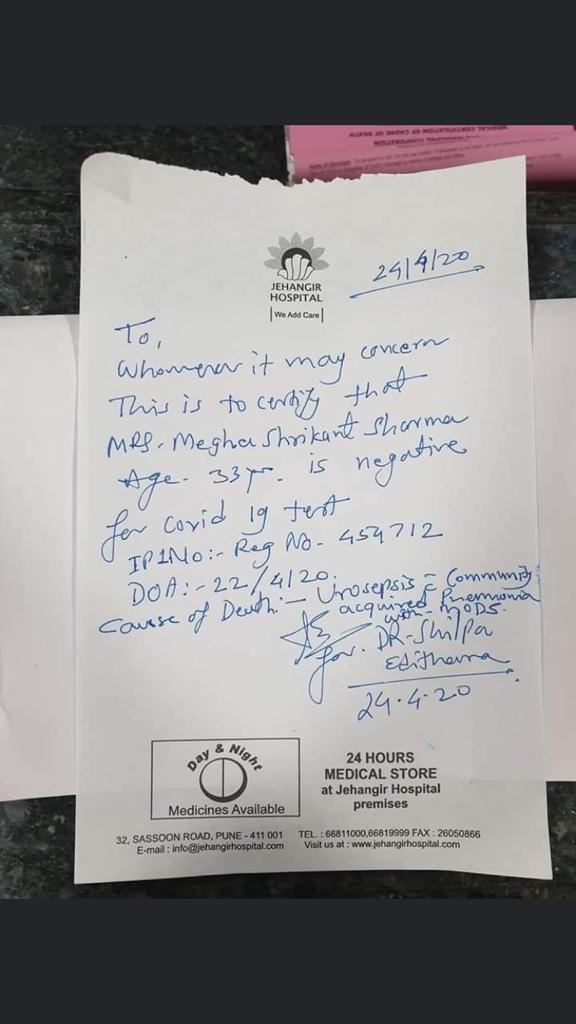 MEDICAL CERTIFICATION OF CAUSE OF DEATH
CORPORATION
JEHANGIR
HOSPITAL
We Add Care
24/4/20
To,
Whomever it may concern
This is to certify that
MRS. Megha Shrikant Sharma
Age - 33 yr. is negative
for covid 19 test
IP1No:- Reg No - 454712
DOA:- 22/4/20.
Cause of Death:- Urosepsis = Community
acquired Pneumonia
with - MODS.
for. DR-Shilpa
24.4.20
Day & Night
Medicines Available
24 HOURS
MEDICAL STORE
at Jehangir Hospital
premises
32, SASSOON ROAD, PUNE - 411 001 TEL. : 66811000,66819999 FAX : 26050866
E-mail : info@jehangirhospital.com Visit us at : www.jehangirhospital.com